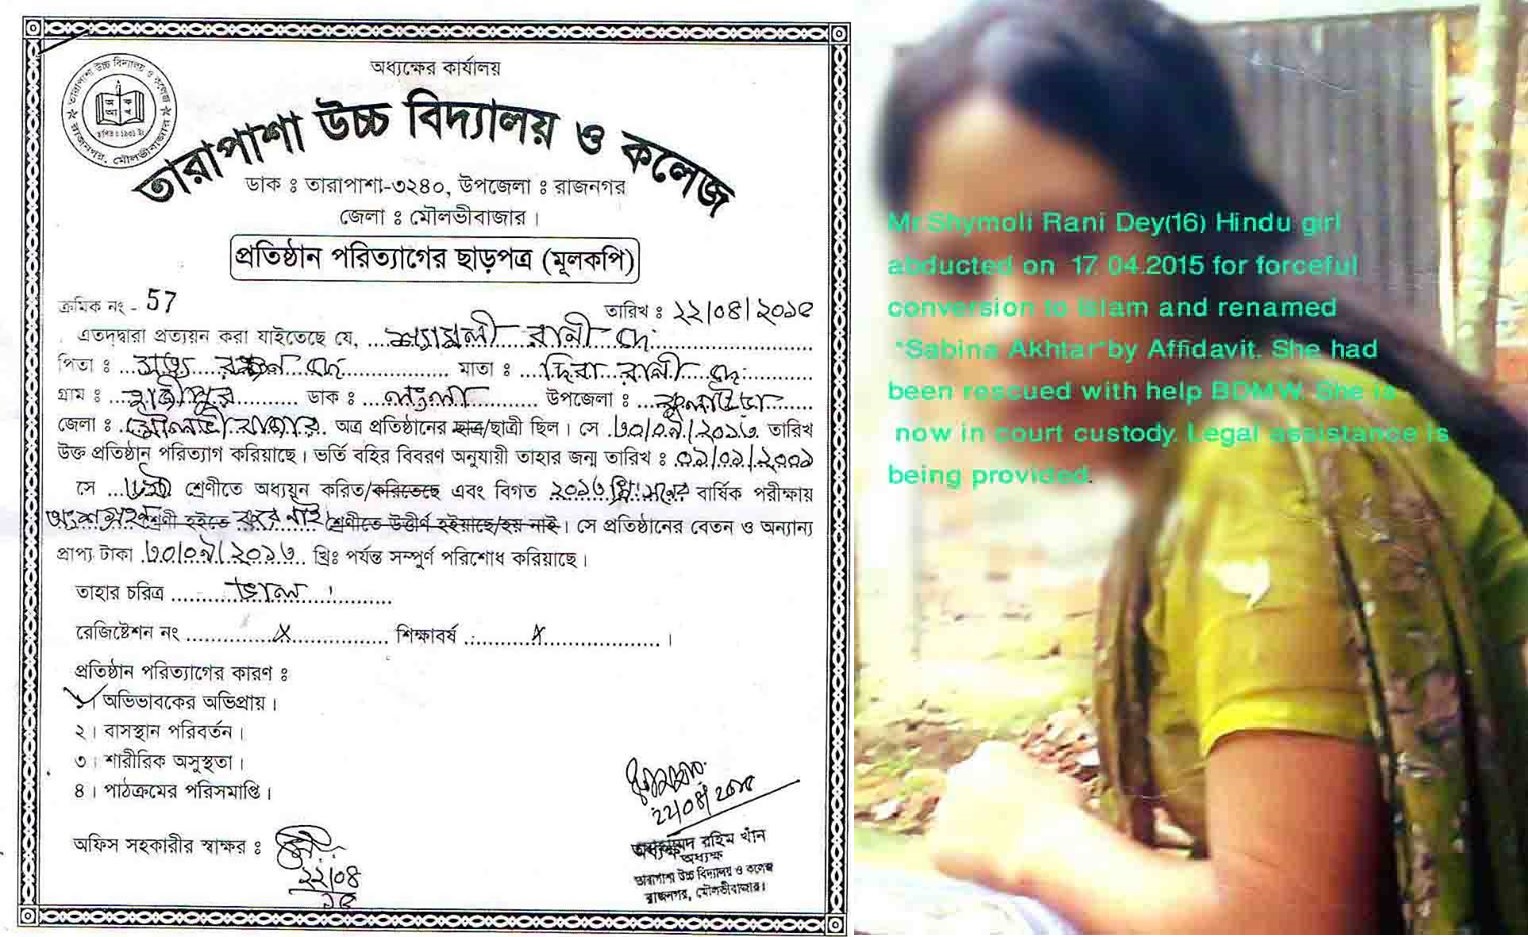 তারাপাশা উচ্চ বিদ্যালয় ও কলেজ
রাজনগর, মৌলভীবাজার
অধ্যক্ষের কার্যালয়
তারাপাশা উচ্চ বিদ্যালয় ও কলেজ
ডাক ঃ তারাপাশা-৩২৪০, উপজেলা ঃ রাজনগর
জেলা ঃ মৌলভীবাজার।
প্রতিষ্ঠান পরিত্যাগের ছাড়পত্র (মূলকপি)
ক্রমিক নং - 57 তারিখ ঃ ২২/০৪/২০১৫
এতদ্দ্বারা প্রত্যয়ন করা যাইতেছে যে, ... শ্যামলী রানী দে
পিতা ঃ ... রঞ্জন দে ... মাতা ঃ ... রানী দে
গ্রাম ঃ হাজীপুর ... ডাক ঃ লংলা ... উপজেলা ঃ কুলাউড়া
জেলা ঃ মৌলভী বাজার. অত্র প্রতিষ্ঠানের ছাত্র/ছাত্রী ছিল। সে ৩০/০৯/২০১৩ তারিখ
উক্ত প্রতিষ্ঠান পরিত্যাগ করিয়াছে। ভর্তি বহির বিবরণ অনুযায়ী তাহার জন্ম তারিখ ঃ
সে ... শ্রেণীতে অধ্যয়ন করিত/করিতেছে এবং বিগত ২০১৩ খ্রিঃ সনের বার্ষিক পরীক্ষায়
অংশগ্রহণ শ্রেণী হইতে করে নাই শ্রেণীতে উত্তীর্ণ হইয়াছে/হয় নাই। সে প্রতিষ্ঠানের বেতন ও অন্যান্য
প্রাপ্য টাকা ৩০/০৯/২০১৩ খ্রিঃ পর্যন্ত সম্পুর্ণ পরিশোধ করিয়াছে।
তাহার চরিত্র ... ভাল।
রেজিষ্টেশন নং ... x ... শিক্ষাবর্ষ ঃ ... x ... ।
প্রতিষ্ঠান পরিত্যাগের কারণ ঃ
অভিভাবকের অভিপ্রায়।
২। বাসস্থান পরিবর্তন।
৩। শারীরিক অসুস্থতা।
৪। পাঠক্রমের পরিসমাপ্তি।
২২/০৪/২০১৫
অফিস সহকারীর স্বাক্ষর ঃ
২২/০৪
১৫
রহিম খাঁন
অধ্যক্ষ
তারাপাশা উচ্চ বিদ্যালয় ও কলেজ
রাজনগর, মৌলভীবাজার।
Mr.Shymoli Rani Dey(16) Hindu girl
abducted on 17. 04.2015 for forceful
conversion to Islam and renamed
"Sabina Akhtar"by Affidavit. She had
been rescued with help BDMW. She is
now in court custody. Legal assistance is
being provided.